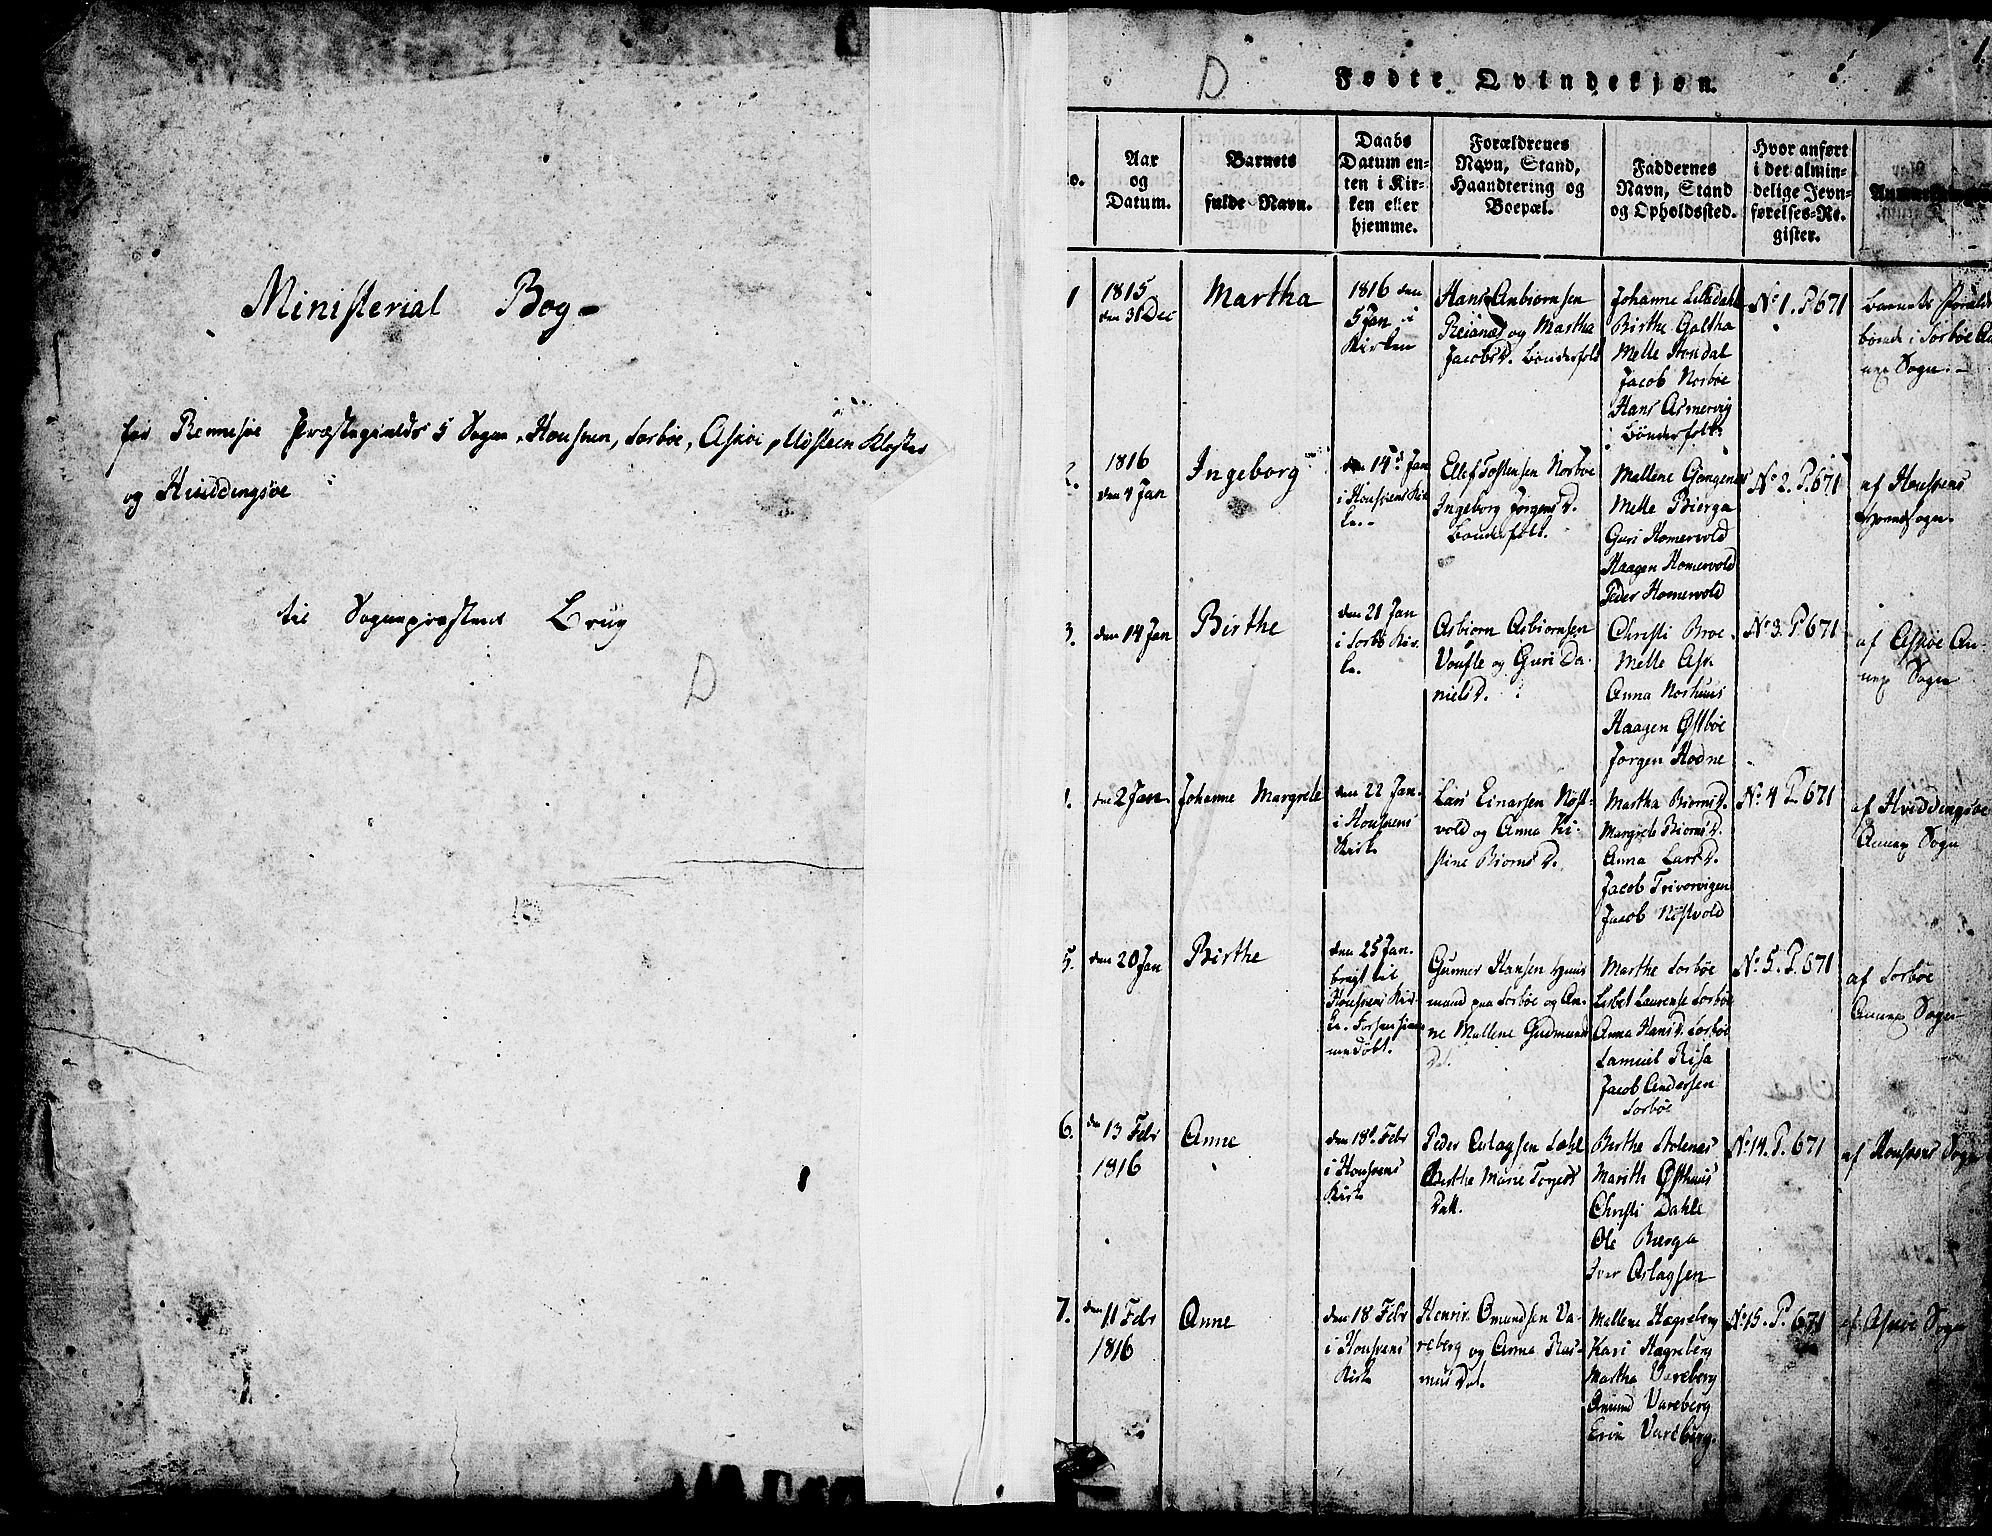 Ministerial Bog
for Rennesøe Præstegields 5 Sogne, Houskeen, Sørbøe, Askøe, Udsteen Kloster
og Hviddingsøe
til Sognepræstens Brug
D
D
1.
Fødte Qvindekjøn.
No.
Aar
og
Datum.
Barnets
fulde Navn.
Daabs
Datum en-
ten i Kir-
ken eller
hjemme.
Forældrenes
Navn, Stand,
Haandtering og
Boepæl.
Faddernes
Navn, Stand
og Opholdssted.
Hvor anført
i det almin-
delige Jevn-
førelses-Re-
gister.
1
1815
den 31 Dec
Martha
1816 den
5 Jan i
Kirken
Hans Anbiørnsen
Reianæs og Martha
Jacobs D. Bønderfolk
Johanne
Birthe Galtha
Melle
Jacob Norbøe
Hans Asmervig
Bønderfolk
No 1. P. 671
Barnets
boende i Sørbøe
nex Sogn.
2.
1816
den 4 Jan
Ingeborg
den 14de Jan
i
ke.
Ellef Tostensen Norbøe
Ingeborg Jørgens D.
Bønderfolk.
Mallene
Melle Bierga
Guri Homervold
Haagen Homervold
Peder Homervold
No 2. P. 671
af
3.
den 14 Jan
Birthe
den 21 Jan
i Sørbø Kir-
ke.
Asbiørn Asbiørnsen
og Guri Da-
niels D.
Christi Broe
Melle Ask
Anna Norhuus
Haagen Østbøe
Jørgen Hodne
No 3. P. 671
af Askøe An-
nex Sogn
4.
den 2 Jan
Johanne Margrete
den 22 Jan.
i
Kirke
Lars Einarsen Nøst-
vold og Anna Ki-
stine Biørns D.
Martha Biørns D.
Margrete Biørns D.
Anna Lars D.
Jacob
Jacob Nøstvold
No. 4 P. 671
af Hviddingsøe
Annex Sogn
5.
den 20 Jan
Birthe
den 25 Jan.
bragt til
Kir-
ke. Forhen hiem-
medøbt.
Gunner Hansen Huus
mand paa Sørbøe og An-
ne Mallene Gudmunds
Dt.
Marthe Sørbøe
Lisbet Laurense Sørbøe
Anna Hans D. Sørbøe
Samuel Risa
Jacob Andersen
Sørbøe
No. 5. P. 671
af Sørbøe
Annex Sogn
6.
den 13 Febr
1816
Anne
den 18de Febr
i
Kirke
Peder Aslagsen Dahl
Berthe Marie Torgers
Datt.
Berthe
Marithe Østhuus
Christi Dahle
Ole Bierga
Iver Aslagsen
No. 14. P. 671
af Sogn
7.
den 11 Febr
1816
Anne
den 18 Febr
i
Kirke
Henrik Omundsen Va-
reberg og Anna Ras-
mus Dat.
Mallene Hagreberg
Kari Hagreberg
Martha Vareberg
Omund Vareberg
Erik Vareberg.
No. 15. P. 671
af Askøe Sogn